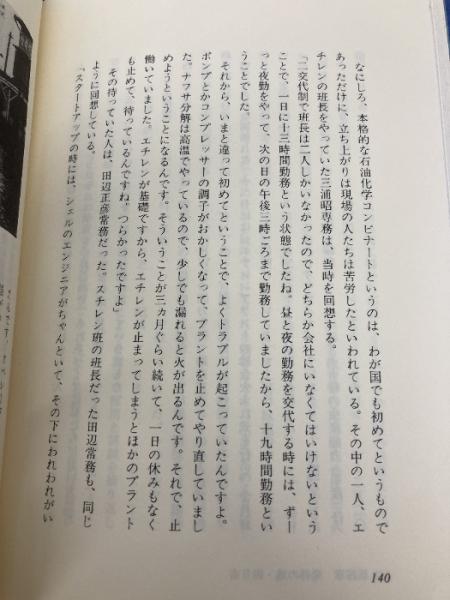 なにしろ、本格的な石油化学コンビナートというのは、わが国でも初めてというもので
あっただけに、立ち上がりは現場の人たちは苦労したといわれている。その中の一人、エ
チレンの班長をやっていた三浦昭専務は、当時を回想する。
「二交代制で班長は二人しかいなかったので、どちらか会社にいなくてはいけないという
ことで、一日に十三時間勤務という状態でしたね。昼と夜の勤務を交代する時には、ずー
っと夜勤をやって、次の日の午後三時ごろまで勤務していましたから、十九時間勤務とい
うことでした。
それから、いまと違って初めてということで、よくトラブルが起こっていたんですよ。
ポンプとかコンプレッサーの調子がおかしくなって、プラントを止めてやり直していまし
た。ナフサ分解は高温でやっているので、少しでも漏れると火が出るんです。それで、止
めようということになるんです。そういうことが三ヵ月ぐらい続いて、一日の休みもなく
働いていました。エチレンが基礎ですから、エチレンが止まってしまうとほかのプラント
も止めて、待っているんですね。つらかったですよ」
その待っていた人は、田辺正彦常務だった。スチレン班の班長だった田辺常務も、同じ
ように回想している。
「スタートアップの時には、シェルのエンジニアがちゃんといて、その下にわれわれがい
140